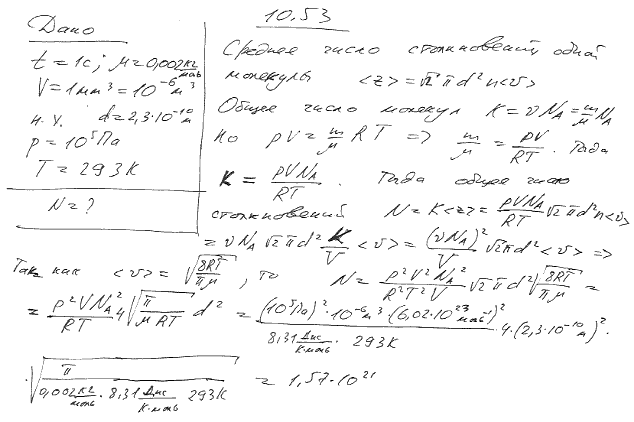 10.53
Дано
t = 1c; μ = 0,002 кг/моль
V = 1мм³ = 10⁻⁶ м³
н.у. d = 2,3·10⁻¹⁰ м
p = 10⁵ Па
T = 293К
N = ?
Среднее число столкновений одной
молекулы <z> = √2 π d² n <v>
Общее число молекул K = νN_A = m/μ N_A
Но pV = m/μ RT => m/μ = pV/RT. Тогда
K = pVN_A/RT. Тогда общее число
столкновений N = K<z> = pVN_A/RT √2 π d² n <v>
= νN_A √2 π d² K/V <v> = (νN_A)²/V √2 π d² <v> =>
Так как <v> = √(8RT/πμ), то N = p²V²N_A²/R²T²V √2 π d² √(8RT/πμ) =
= p²VN_A²/RT 4 √(π/μRT) d² = (10⁵Па)²·10⁻⁶м³ (6,02·10²³ моль⁻¹)²/8,31 Дж/К·моль · 293К · 4·(2,3·10⁻¹⁰м)².
·√(π/0,002 кг/моль · 8,31 Дж/К·моль 293К) = 1,57·10²¹